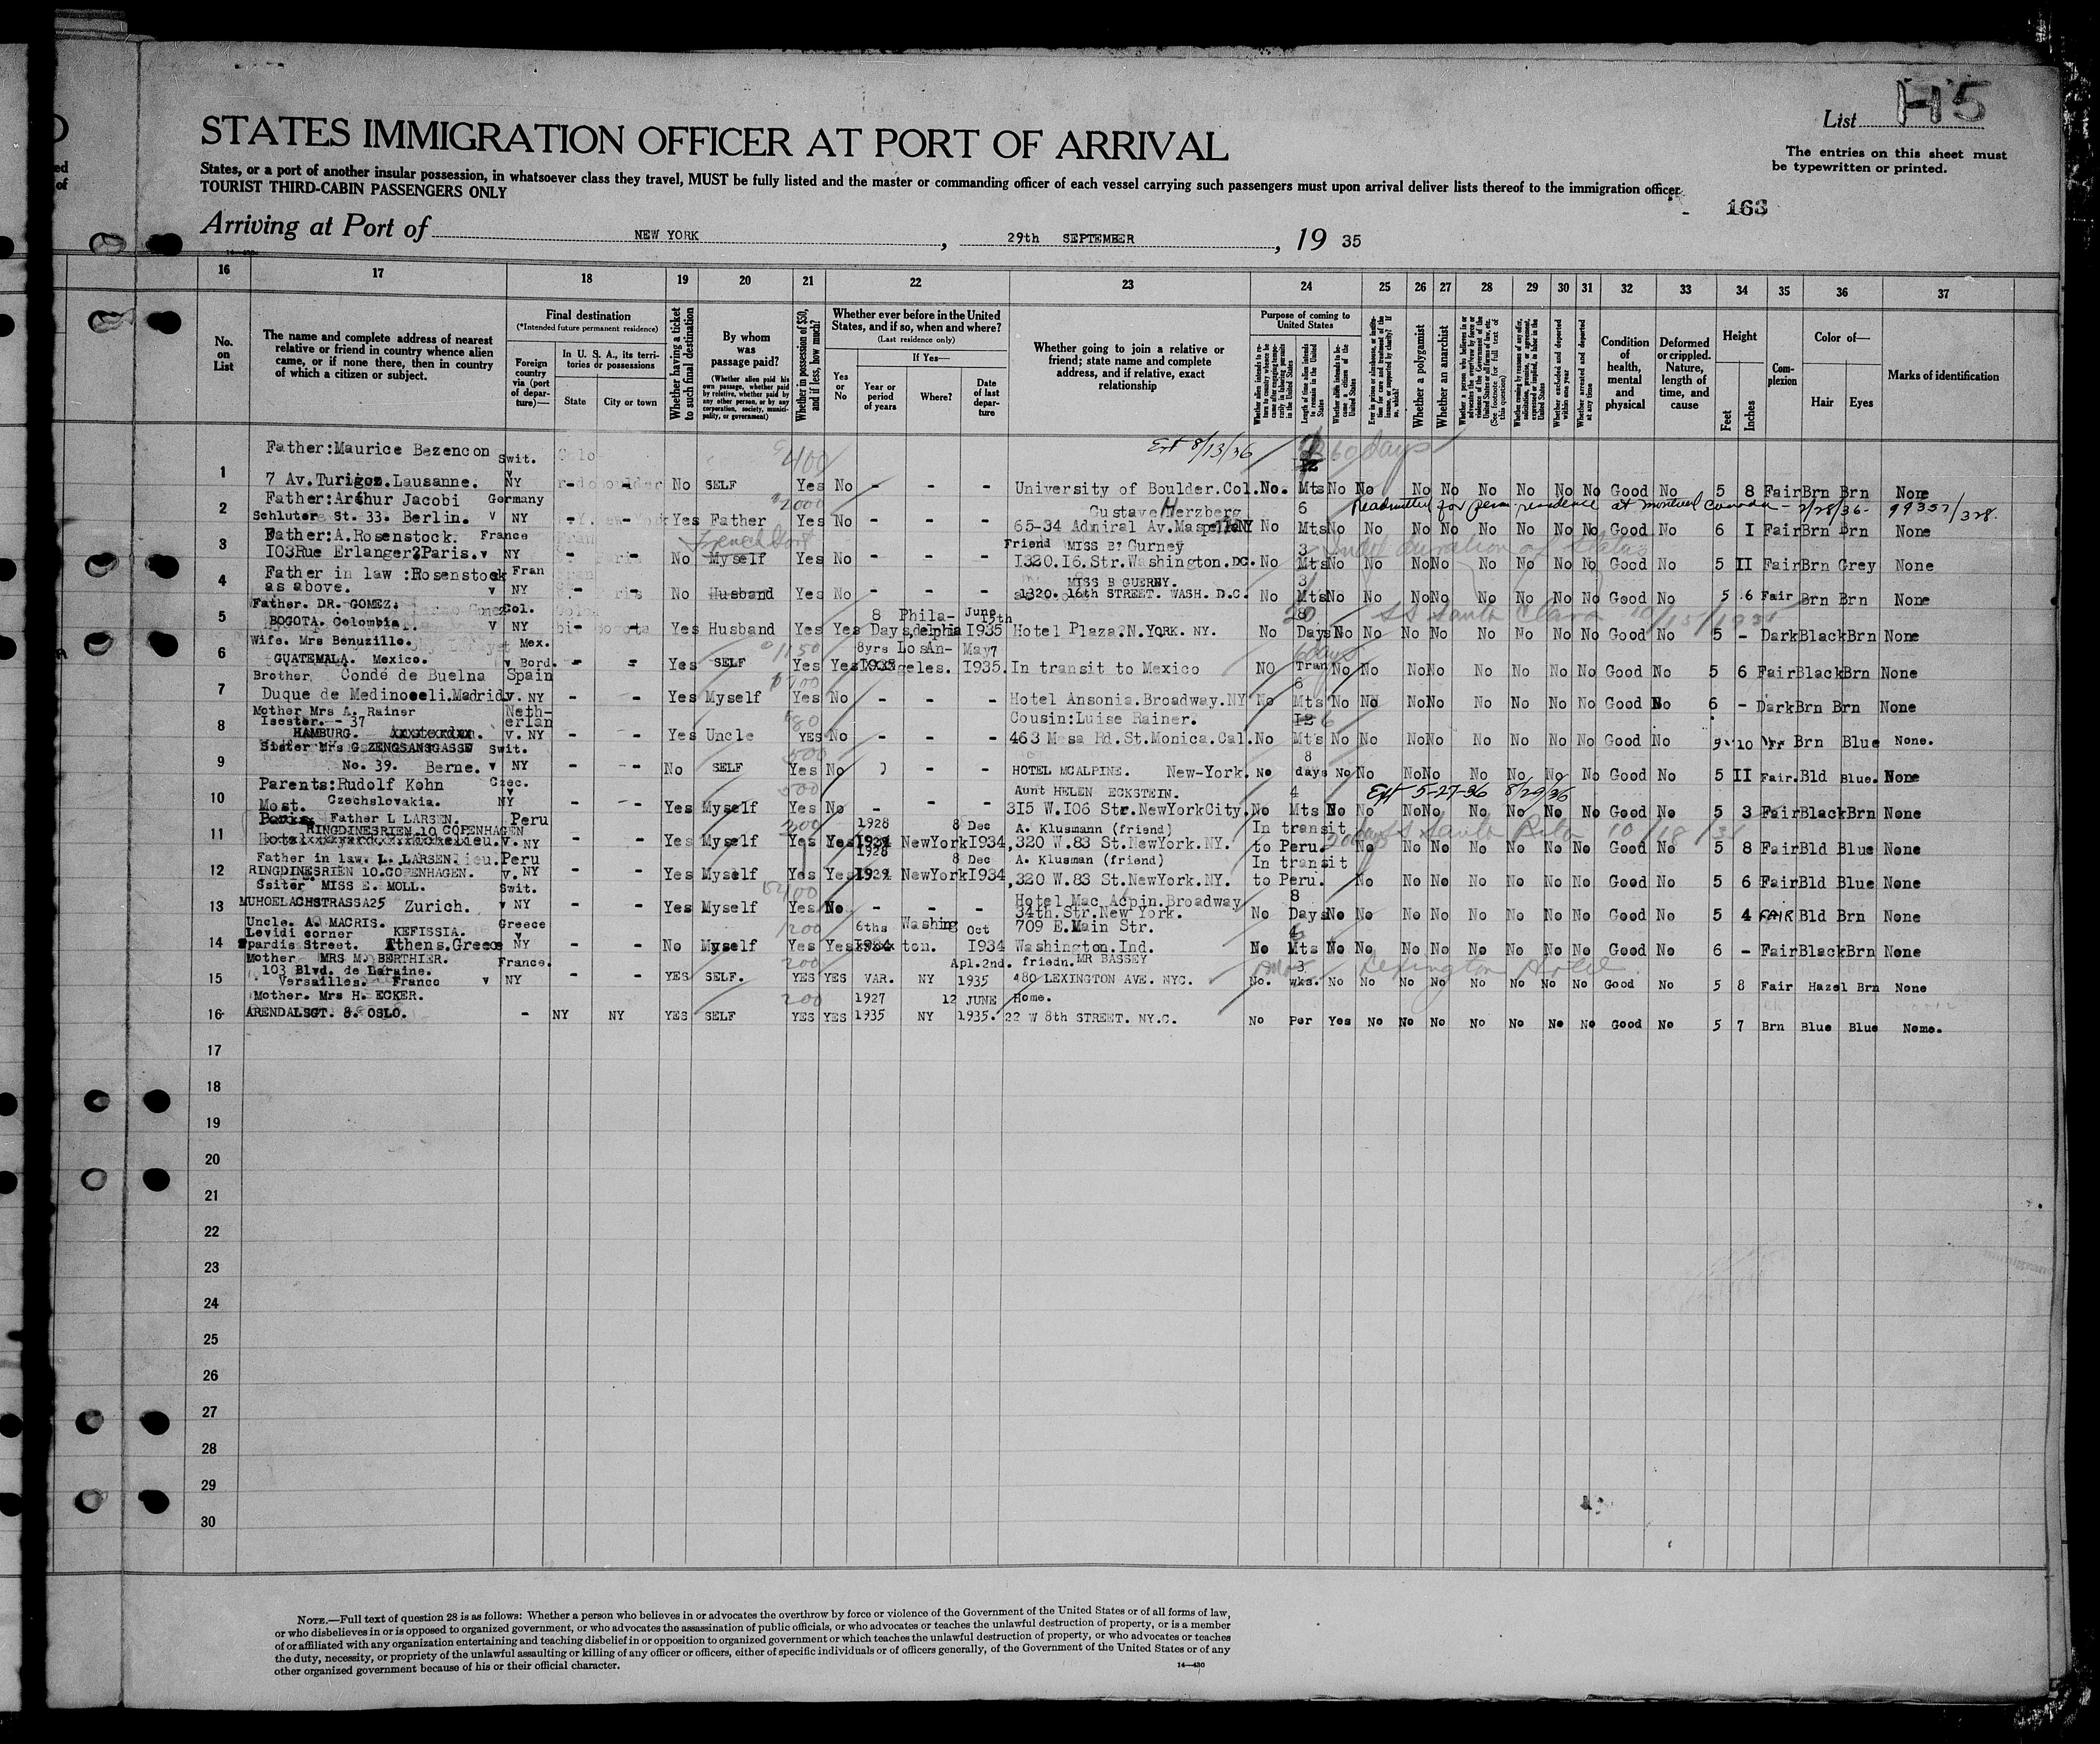 List H5
STATES IMMIGRATION OFFICER AT PORT OF ARRIVAL
The entries on this sheet must be typewritten or printed.
States, or a port of another insular possession, in whatsoever class they travel, MUST be fully listed and the master or commanding officer of each vessel carrying such passengers must upon arrival deliver lists thereof to the immigration officer
TOURIST THIRD-CABIN PASSENGERS ONLY
163
Arriving at Port of NEW YORK, 29th SEPTEMBER, 19 35
16 17 18 19 20 21 22 23 24 25 26 27 28 29 30 31 32 33 34 35 36 37
No. on List
The name and complete address of nearest relative or friend in country whence alien came, or if none there, then in country of which a citizen or subject.
Final destination
(*Intended future permanent residence)
Foreign country via (port of departure)—
In U. S. A., its territories or possessions
State
City or town
Whether having a ticket to such final destination
By whom was passage paid?
(Whether alien paid his own passage, whether paid by relative, whether paid by any other person, or by any corporation, society, municipality, or government)
Whether in possession of $50, and if less, how much?
Whether ever before in the United States, and if so, when and where?
(Last residence only)
Yes or No
If Yes—
Year or period of years
Where?
Date of last departure
Whether going to join a relative or friend; state name and complete address, and if relative, exact relationship
Purpose of coming to United States
Length of time alien intends to remain in the United States
Whether a polygamist
Whether an anarchist
Whether excluded and deported within one year
Whether arrested and deported at any time
Condition of health, mental and physical
Deformed or crippled. Nature, length of time, and cause
Height
Feet
Inches
Complexion
Color of—
Hair
Eyes
Marks of identification
Ext 8/13/36 60 days
1 Father:Maurice Bezencon Swit. 400
7 Av. Lausanne. v NY - - No SELF Yes No - - - University of Boulder.Col. No. Mts No No No No No No No No Good No 5 8 Fair Brn Brn None
2 Father:Arthur Jacobi Germany 2000 Gustave Herzberg 6 Readmitted for perm residence at Montreal Canada - 2/28/36- 99357/328.
Schluter St. 33. Berlin. v NY - - Yes Father Yes No - - - 65-34 Admiral Av. NY No Mts No No No No No No No Good No 6 I Fair Brn Brn None
3 Father:A.Rosenstock. France Friend MISS B? Gurney 3 duration of status
I03Rue Erlanger?Paris. v NY - - No Myself Yes No - - - I320.I6.Str.Washington.DC. No Mts No No No No No No No No Good No 5 II Fair Brn Grey None
4 Father in law :Rosenstock Fran MISS B GUERNY. 3
as above. v NY - - No Husband Yes No - - - 1320. 16th STREET. WASH. D.C. No Mts No No No No No No No No Good No 5 6 Fair Brn Brn None
5 Father. DR. GOMEZ. Col. 8 Phila- June 15th SS Santa Clara 10/15/1935
BOGOTA. Colombia. v NY - - Yes Husband Yes Yes Days delphia I935 Hotel Plaza?N.YORK. NY. No Days No No No No No No No No Good No 5 - Dark Black Brn None
6 Wife. Mrs Benuzillo. Mex. 1150 8yrs LosAn- May7 60days
GUATEMALA. Mexico. v Bord. - - Yes SELF Yes Yes geles. I935. In transit to Mexico NO Tran No No No No No No No No Good No 5 6 Fair Black Brn None
7 Brother Conde de Buelna Spain 6
Duque de Medinoceli.Madrid v. NY - - Yes Myself Yes No - - - Hotel Ansonia.Broadway.NY No Mts No No No No No No No No Good No 6 - Dark Brn Brn None
8 Mother Mrs A. Rainer Neth- Cousin:Luise Rainer.
Isester. - 37 erlan 80
HAMBURG. v. NY - - Yes Uncle YES No - - - 463 Mesa Rd.St.Monica.Cal. No Mts No No No No No No No No Good No 10 Brn Blue None.
9 Sister Mrs G. ZENGSANSGASSE Swit. 500 8
No. 39. Berne. v NY - - No SELF Yes No - - HOTEL MCALPINE. New-York. No days No No No No No No No No Good No 5 II Fair. Bld Blue. None
10 Parents:Rudolf Kohn Czec. 500 Aunt HELEN ECKSTEIN. 4 Ext 5-27-36 8/29/36
Most. Czechslovakia. v NY - - Yes Myself Yes No - - - 3I5 W.I06 Str.NewYorkCity. No Mts No No No No No No No No Good No 5 3 Fair Black Brn None
11 Father L LARSEN. Peru 200 1928 8 Dec A. Klusmann (friend) In transit SS Santa Rita 10/18/35
RINGDINESRIEN 10 COPENHAGEN v. NY - - Yes Myself Yes Yes NewYork I934, 320 W.83 St.NewYork.NY. to Peru. No No No No No No No Good No 5 8 Fair Bld Blue None
12 Father in law. L. LARSEN Peru 1928 8 Dec A. Klusman (friend) In transit
RINGDINESRIEN 10.COPENHAGEN. v. NY - - Yes Myself Yes Yes NewYork I934, 320 W.83 St.NewYork.NY. to Peru. No No No No No No No Good No 5 6 Fair Bld Blue None
13 Ssiter MISS E. MOLL. Swit. Hotel Mac Acpin.Broadway 8
MUHOELACHSTRASSA25 Zurich. v NY - - Yes Myself Yes No. - - - 34th.Str.New York. No Days No No No No No No No No Good No 5 4 FAIR Bld Brn None
14 Uncle. A. MACRIS. Greece 1200 6ths Washing Oct 709 E.Main Str.
Levidi corner KEFISSIA. v
Spardis Street. Athens.Greece NY - - No Myself Yes Yes ton. I934 Washington.Ind. No Mts No No No No No No No No Good No 6 - Fair Black Brn None
15 Mother MRS M. BERTHIER. France. 200 Apl.2nd. friedn.MR BASSEY 3 Lexington
103 Blvd. de Laraine.
Versailles. France v NY - - YES SELF. YES YES VAR. NY 1935 480 LEXINGTON AVE. NYC. No. wks. No No No No No No No No Good No 5 8 Fair Hazel Brn None
16 Mother. Mrs H. ECKER. 200 1927 12 JUNE Home.
ARENDALSGT. 8. OSLO. - NY NY YES SELF YES YES 1935 NY 1935. 22 W 8th STREET. NY.C. No Per Yes No No No No No No No Good No 5 7 Brn Blue Blue None.
17
18
19
20
21
22
23
24
25
26
27
28
29
30
NOTE.—Full text of question 28 is as follows: Whether a person who believes in or advocates the overthrow by force or violence of the Government of the United States or of all forms of law,
or who disbelieves in or is opposed to organized government, or who advocates the assassination of public officials, or who advocates or teaches the unlawful destruction of property, or is a member
of or affiliated with any organization entertaining and teaching disbelief in or opposition to organized government or which teaches the unlawful destruction of property, or who advocates or teaches
the duty, necessity, or propriety of the unlawful assaulting or killing of any officer or officers, either of specific individuals or of officers generally, of the Government of the United States or of any
other organized government because of his or their official character.
14—430